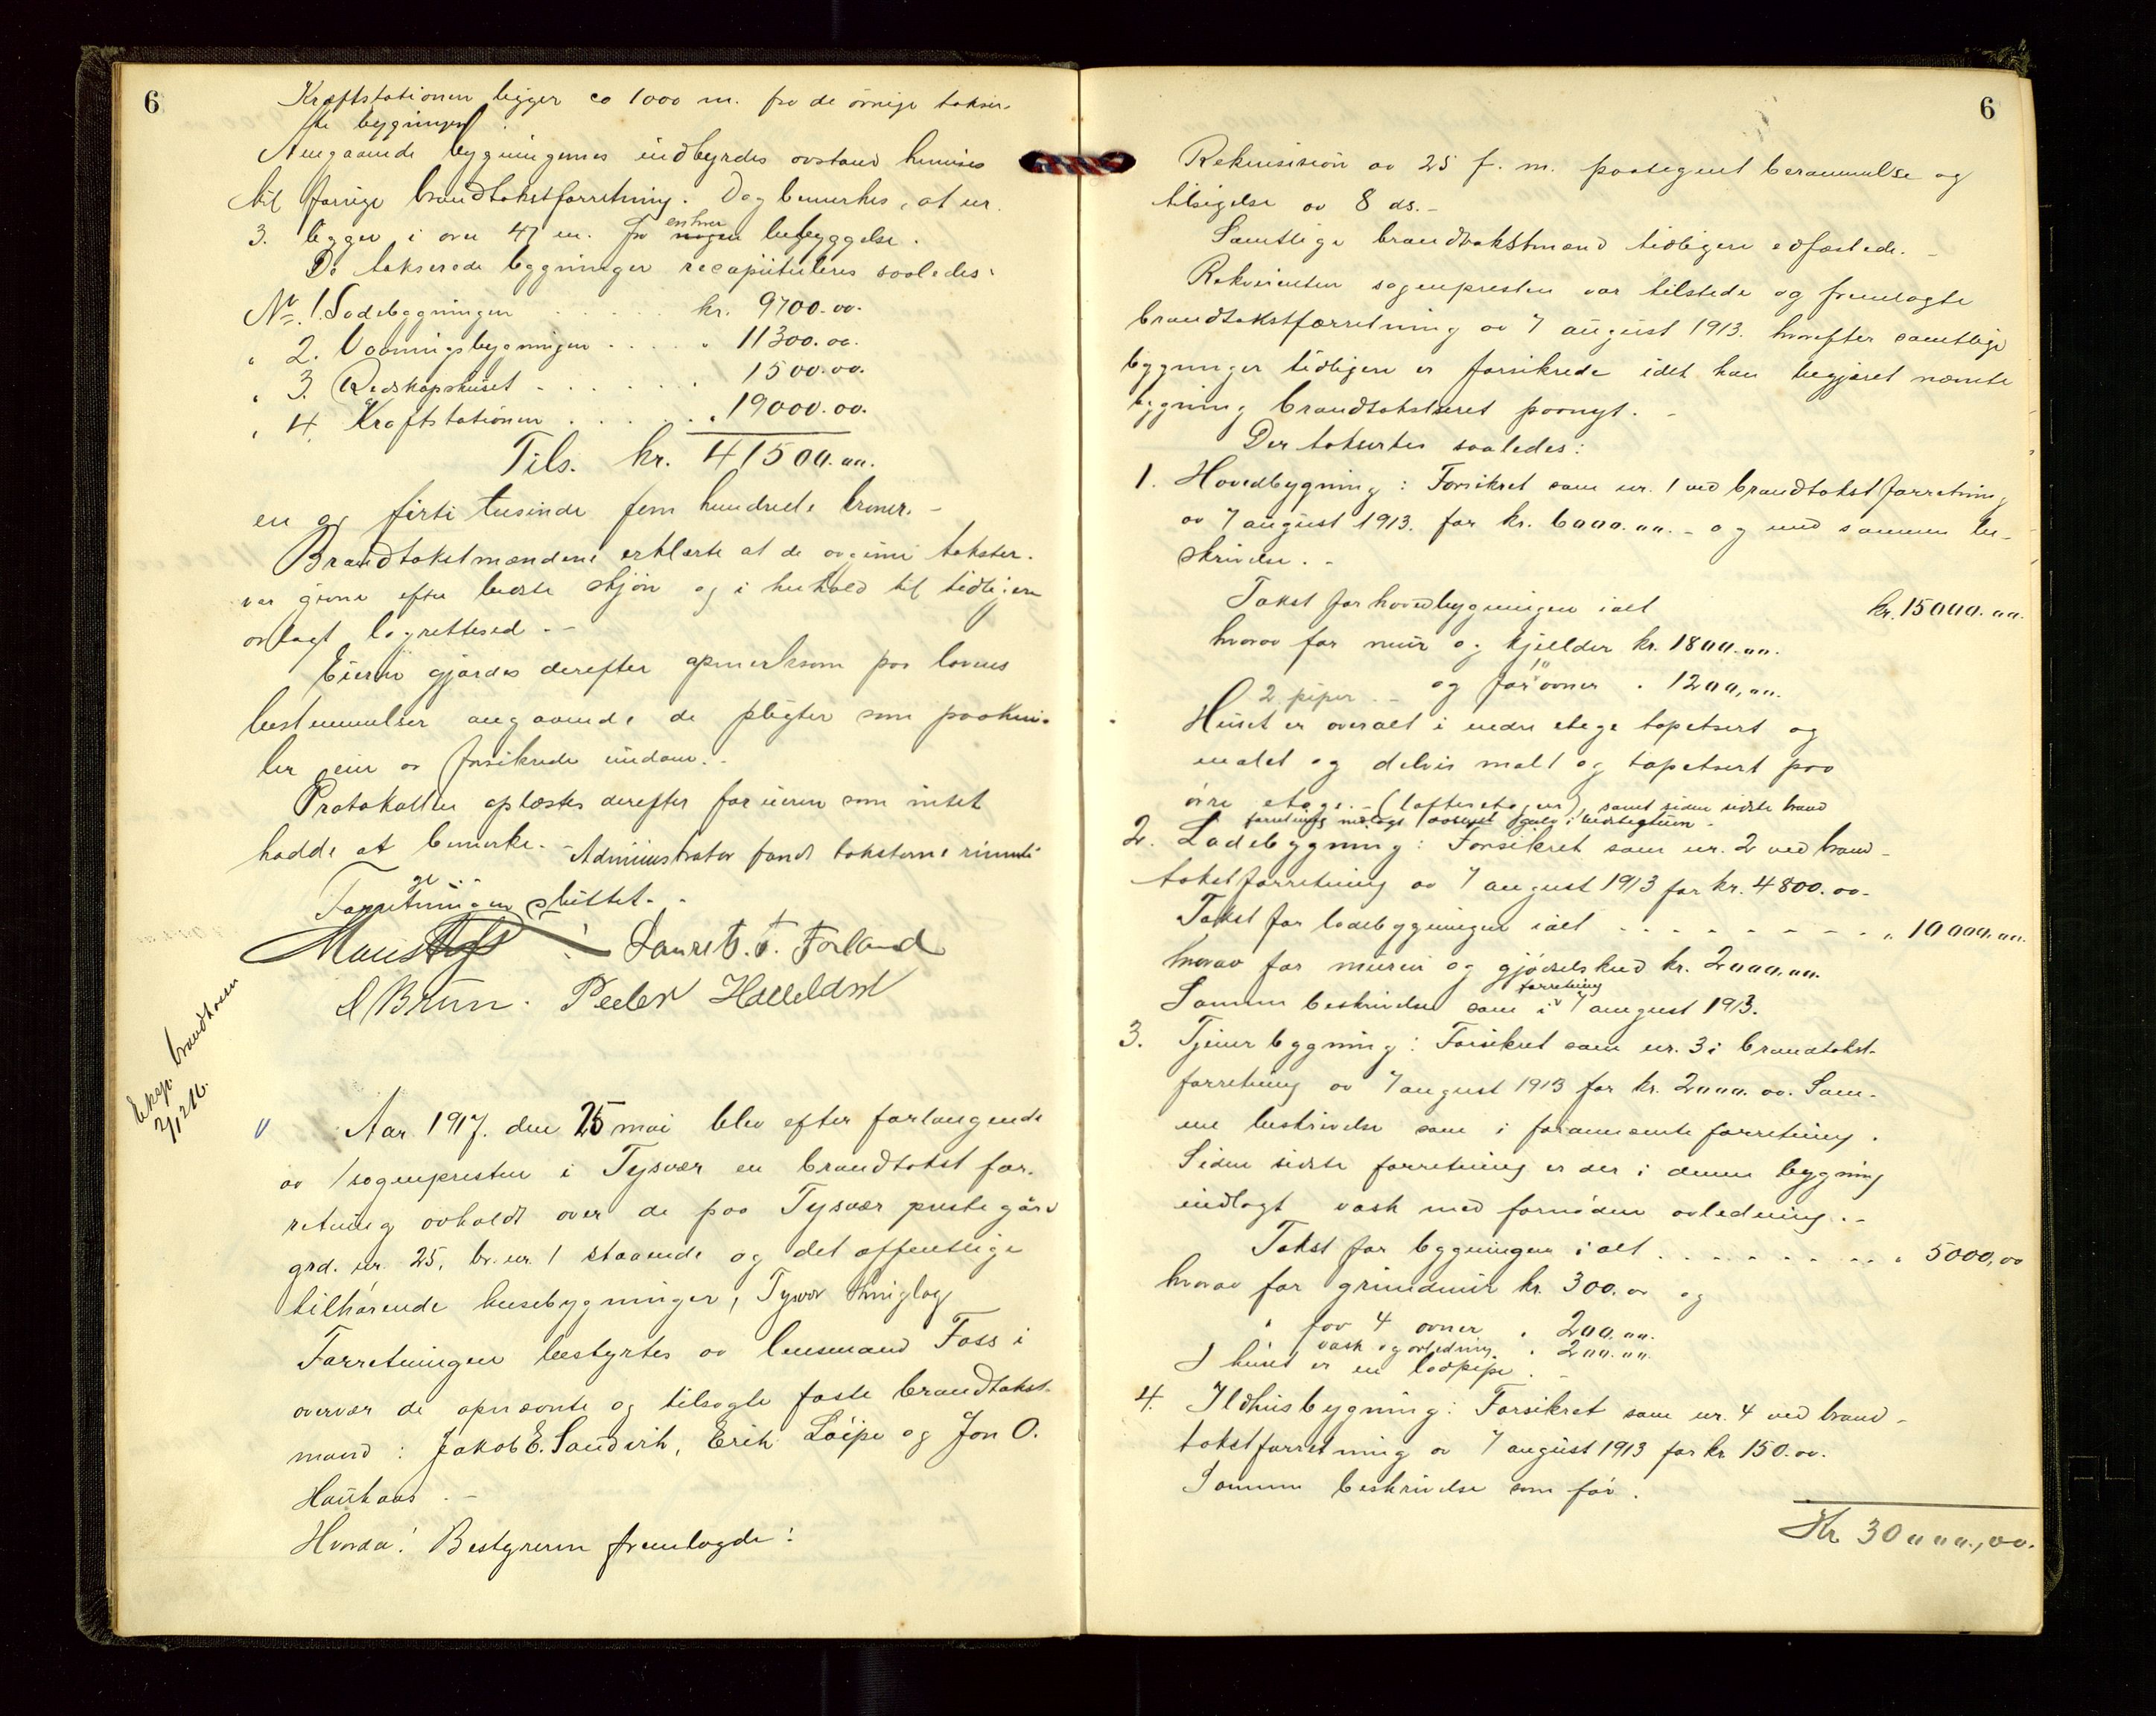 6
Kraftstationen ligger ca 1000 m. fra de övrige takser-
te bygninger.
Angaaende bygningernes indbyrdes avstand henvises
til forrige brandtakstforretning. Dog bemerkes, at nr.
3. ligger i over 47 m. fra enhver nogen bebyggelse.
De takserede bygninger recapituleres saaledes:
Nr. 1. Ladebygningen . . . . . kr. 9700.00.
" 2. Vaaningsbygningen . . . . " 11300.00.
" 3. Redskapshuset . . . . . . 1500.00.
" 4. Kraftstationen . . . . . " 19000.00.
Tils. kr. 41500.00.
en og firti tusinde fem hundrede kroner. -
Brandtakstmændene erklærte at de avgivne takster
var givne efter bedste skjön og i henhold til tidligere
avlagt lagrettesed. -
Eieren gjordes derefter opmerksom paa lovens
bestemmelser angaaende de pligter som paahvi-
ler eier av forsikrede eiendom. -
Protokollen oplæstes derefter for eieren som intet
hadde at bemerke. - Administrator fandt taksterne rimeli-
ge. -
Forretningen sluttet. -
Laurets. T. Forland
Brun. Peder
Eksp. brandkassen
Aar 1917. den 25 mai blev efter forlangende
av sogenpresten i Tysvær en brandtakst for-
retning avholdt over de paa Tysvær prestegård
grd. nr. 25, br. nr. 1 staaende og det offentlige
tilhörende husebygninger, Tysvær thinglag
Forretningen bestyrtes av lensmand Foss i
overvær de opnævnte og tilsagte faste brandtakst-
mænd: Jakob E. Sandvik, Erik Löipe og Jon O.
Haukaas. -
Hvorda! Bestyreren fremlagde:
6
Rekvisision av 25 f. m. paategnet berammelse og
tilsigelse av 8 ds. -
Samtlige brandtakstmænd tidligere edfæstede. -
Rekvirenten sogenpresten var tilstede og fremlagte
brandtakstforretning av 7 august 1913. hvorefter samtlige
bygninger tidligere er forsikrede idet han begjæret nævnte
bygning brandtakseret paanyt. -
Der taksertes saaledes:
1. Hovedbygning: Forsikret som nr. 1 ved brandtakstforretning
av 7 august 1913. for kr. 6000.00. - og med samme be-
skrivelse. -
Takst for hovedbygningen ialt kr. 15000.00.
hvorav for mur og kjelder kr. 1800.00.
2 piper. - og for 11 ovner " 1200,00.
Huset er overalt i nedre etage tapetsert og
malet og delvis malt og tapetsert paa
övre etage. - (loftsetagen), samt siden sidste brand
forretning
2. Ladebygning: Forsikret som nr. 2 ved brand-
takstforretning av 7 august 1913 for kr. 4800.00.
Takst for ladebygningen ialt . . . . . . . . " 10000.00.
hvorav for murer og gjödselskud kr. 2000.00.
Samme beskrivelse som i forretning 7 august 1913.
3. Tjenerbygning: Forsikret som nr. 3 i brandtakst-
forretning av 7 august 1913 for kr. 2000.00. Sam-
me beskrivelse som i forannævnte forretning.
Siden sidste forretning er der i denne bygning
indlagt vask med fornöden avledning. -
Takst for bygningen ialt . . . . . . . . . " 5000,00
hvorav for grundmur kr. 300.00 og
" for 4 ovner " 200.00.
" vask og avledning " 200.00.
I huset er en ladpipe. -
4. Ildhusbygning: Forsikret som nr. 4 ved brand-
takstforretning av 7 august 1913 for kr 150.00.
Samme beskrivelse som för.
Kr. 30000,00.